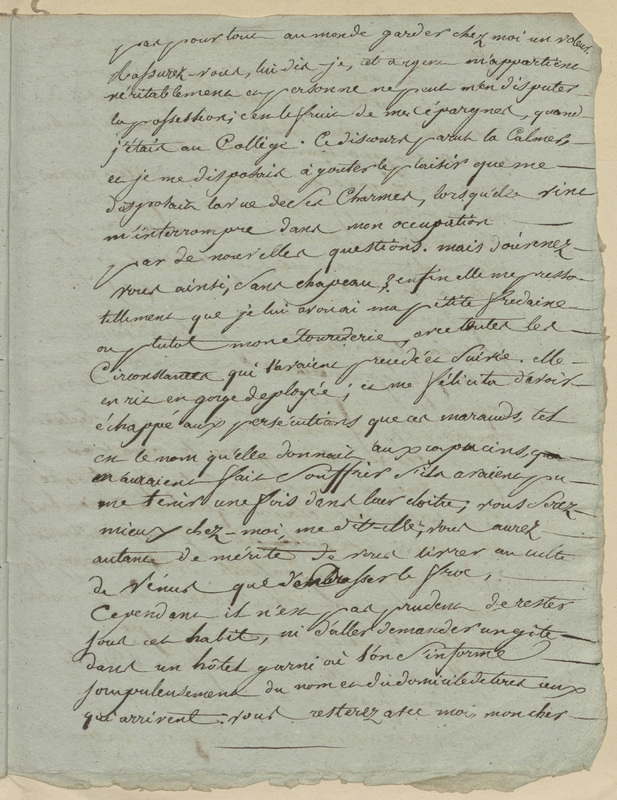 pas pour tout au monde garder chez moi un voleur.
Rassurez-vous, lui dis-je, cet argent m'appartient
véritablement et personne ne peut m'en disputer
la possession; c'est le fruit de mes épargnes, quand
j'étais au Collège. Ce discours parut la Calmer,
et je me disposais à gouter le plaisir que me
disposait la vue de ses Charmes, lorsqu'elle vint
m'interrompre dans mon occupation
par de nouvelles questions. mais d'où venez-
vous ainsi, sans chapeau? enfin elle me pressa
tellement que je lui avouai ma petite fredaine
ou plutot mon étourderie, avec toutes les
Circonstances qui l'avaient précédée et suivie. elle
en rit en gorge deployée; et me félicita d'avoir
échappé aux persécutions que ces marauds, tel
est le nom qu'elle donnait aux capucins, que
m'auraient fait souffrir s'ils avaient pu
me tenir une fois dans leur cloitre; vous serez
mieux chez-moi, me dit-elle; vous aurez
autant de mérite de vous livrer au culte
de Vénus que d'embrasser le froc,
Cependant il n'est pas prudent de rester
sous cet habit, ni d'aller demander un gite
dans un hôtel garni où l'on s'informe
scrupuleusement du nom et du domicile de tous ceux
qui arrivent. vous resterez avec moi, mon cher